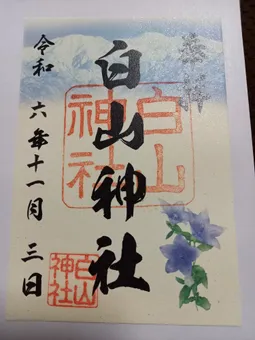 奉拝
白山神社
白山
神社
令和六年十一月三日
白山
神社